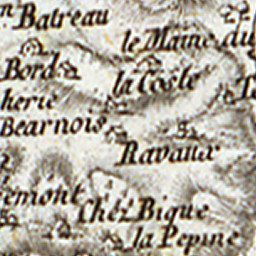 Balreau
le Maine du
Bord
la Coste
herie
Bearnois
Ravaux
emont
Chéz Bigue
la Pepine